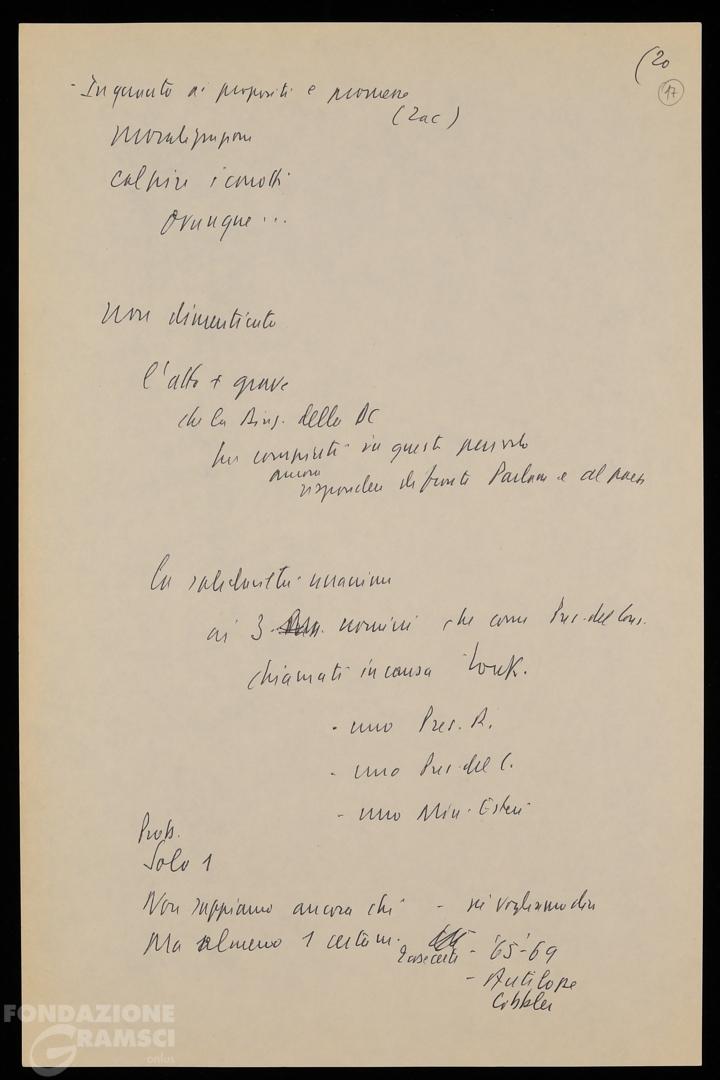 (20
17
- In quanto ai propositi e promesse
(Zac)
Moralizzazione
Colpire i corrotti
Ovunque...
non dimenticato
l'atto + grave
che la Direz. della DC
ha compiuto in questo periodo
ancora
rispondere di fronte Parlam e al paese
la solidarietà unanime
ai 3 uomini che come Pres. del Cons.
chiamati in causa Lock.
- uno Pres. R.
- uno Pres. del C.
- uno Min. Esteri
Prob.
Solo 1
Non sappiamo ancora chi - nè vogliamo dirlo
Ma almeno 1 certam.
2 cose certe - '65-'69
- Antilope
Cobbler
FONDAZIONE
GRAMSCI
onlus